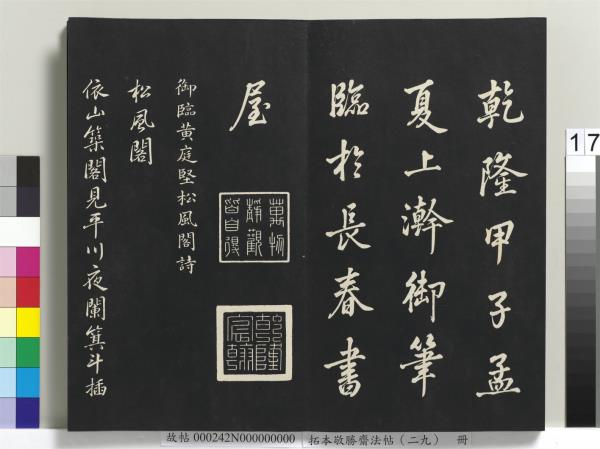 乾隆甲子孟
夏上澣御筆
臨於長春書
屋
萬物
靜觀
皆自得
乾隆
宸翰
御臨黃庭堅松風閣詩
松風閣
依山築閣見平川夜闌箕斗插
17
故帖000242N000000000 拓本敬勝齋法帖(二九) 冊